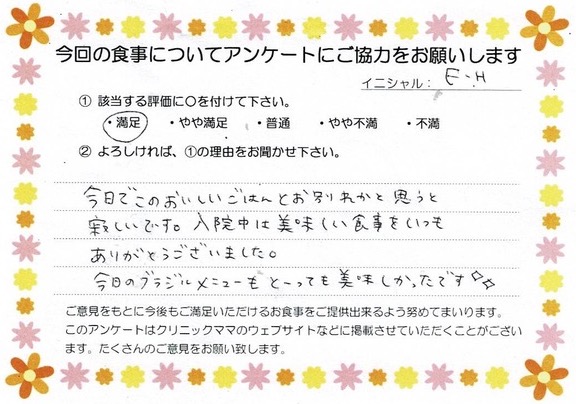 今回の食事についてアンケートにご協力をお願いします
イニシャル： E・H
① 該当する評価に○を付けて下さい。
・満足 ・やや満足 ・普通 ・やや不満 ・不満
② よろしければ、①の理由をお聞かせ下さい。
今日でこのおいしいごはんとお別れかと思うと
寂しいです。入院中は美味しい食事をいつも
ありがとうございました。
今日のブラジルメニューもと〜っても美味しかったです
ご意見をもとに今後もご満足いただけるお食事をご提供出来るよう努めてまいります。
このアンケートはクリニックママのウェブサイトなどに掲載させていただくことがござい
ます。たくさんのご意見をお願い致します。